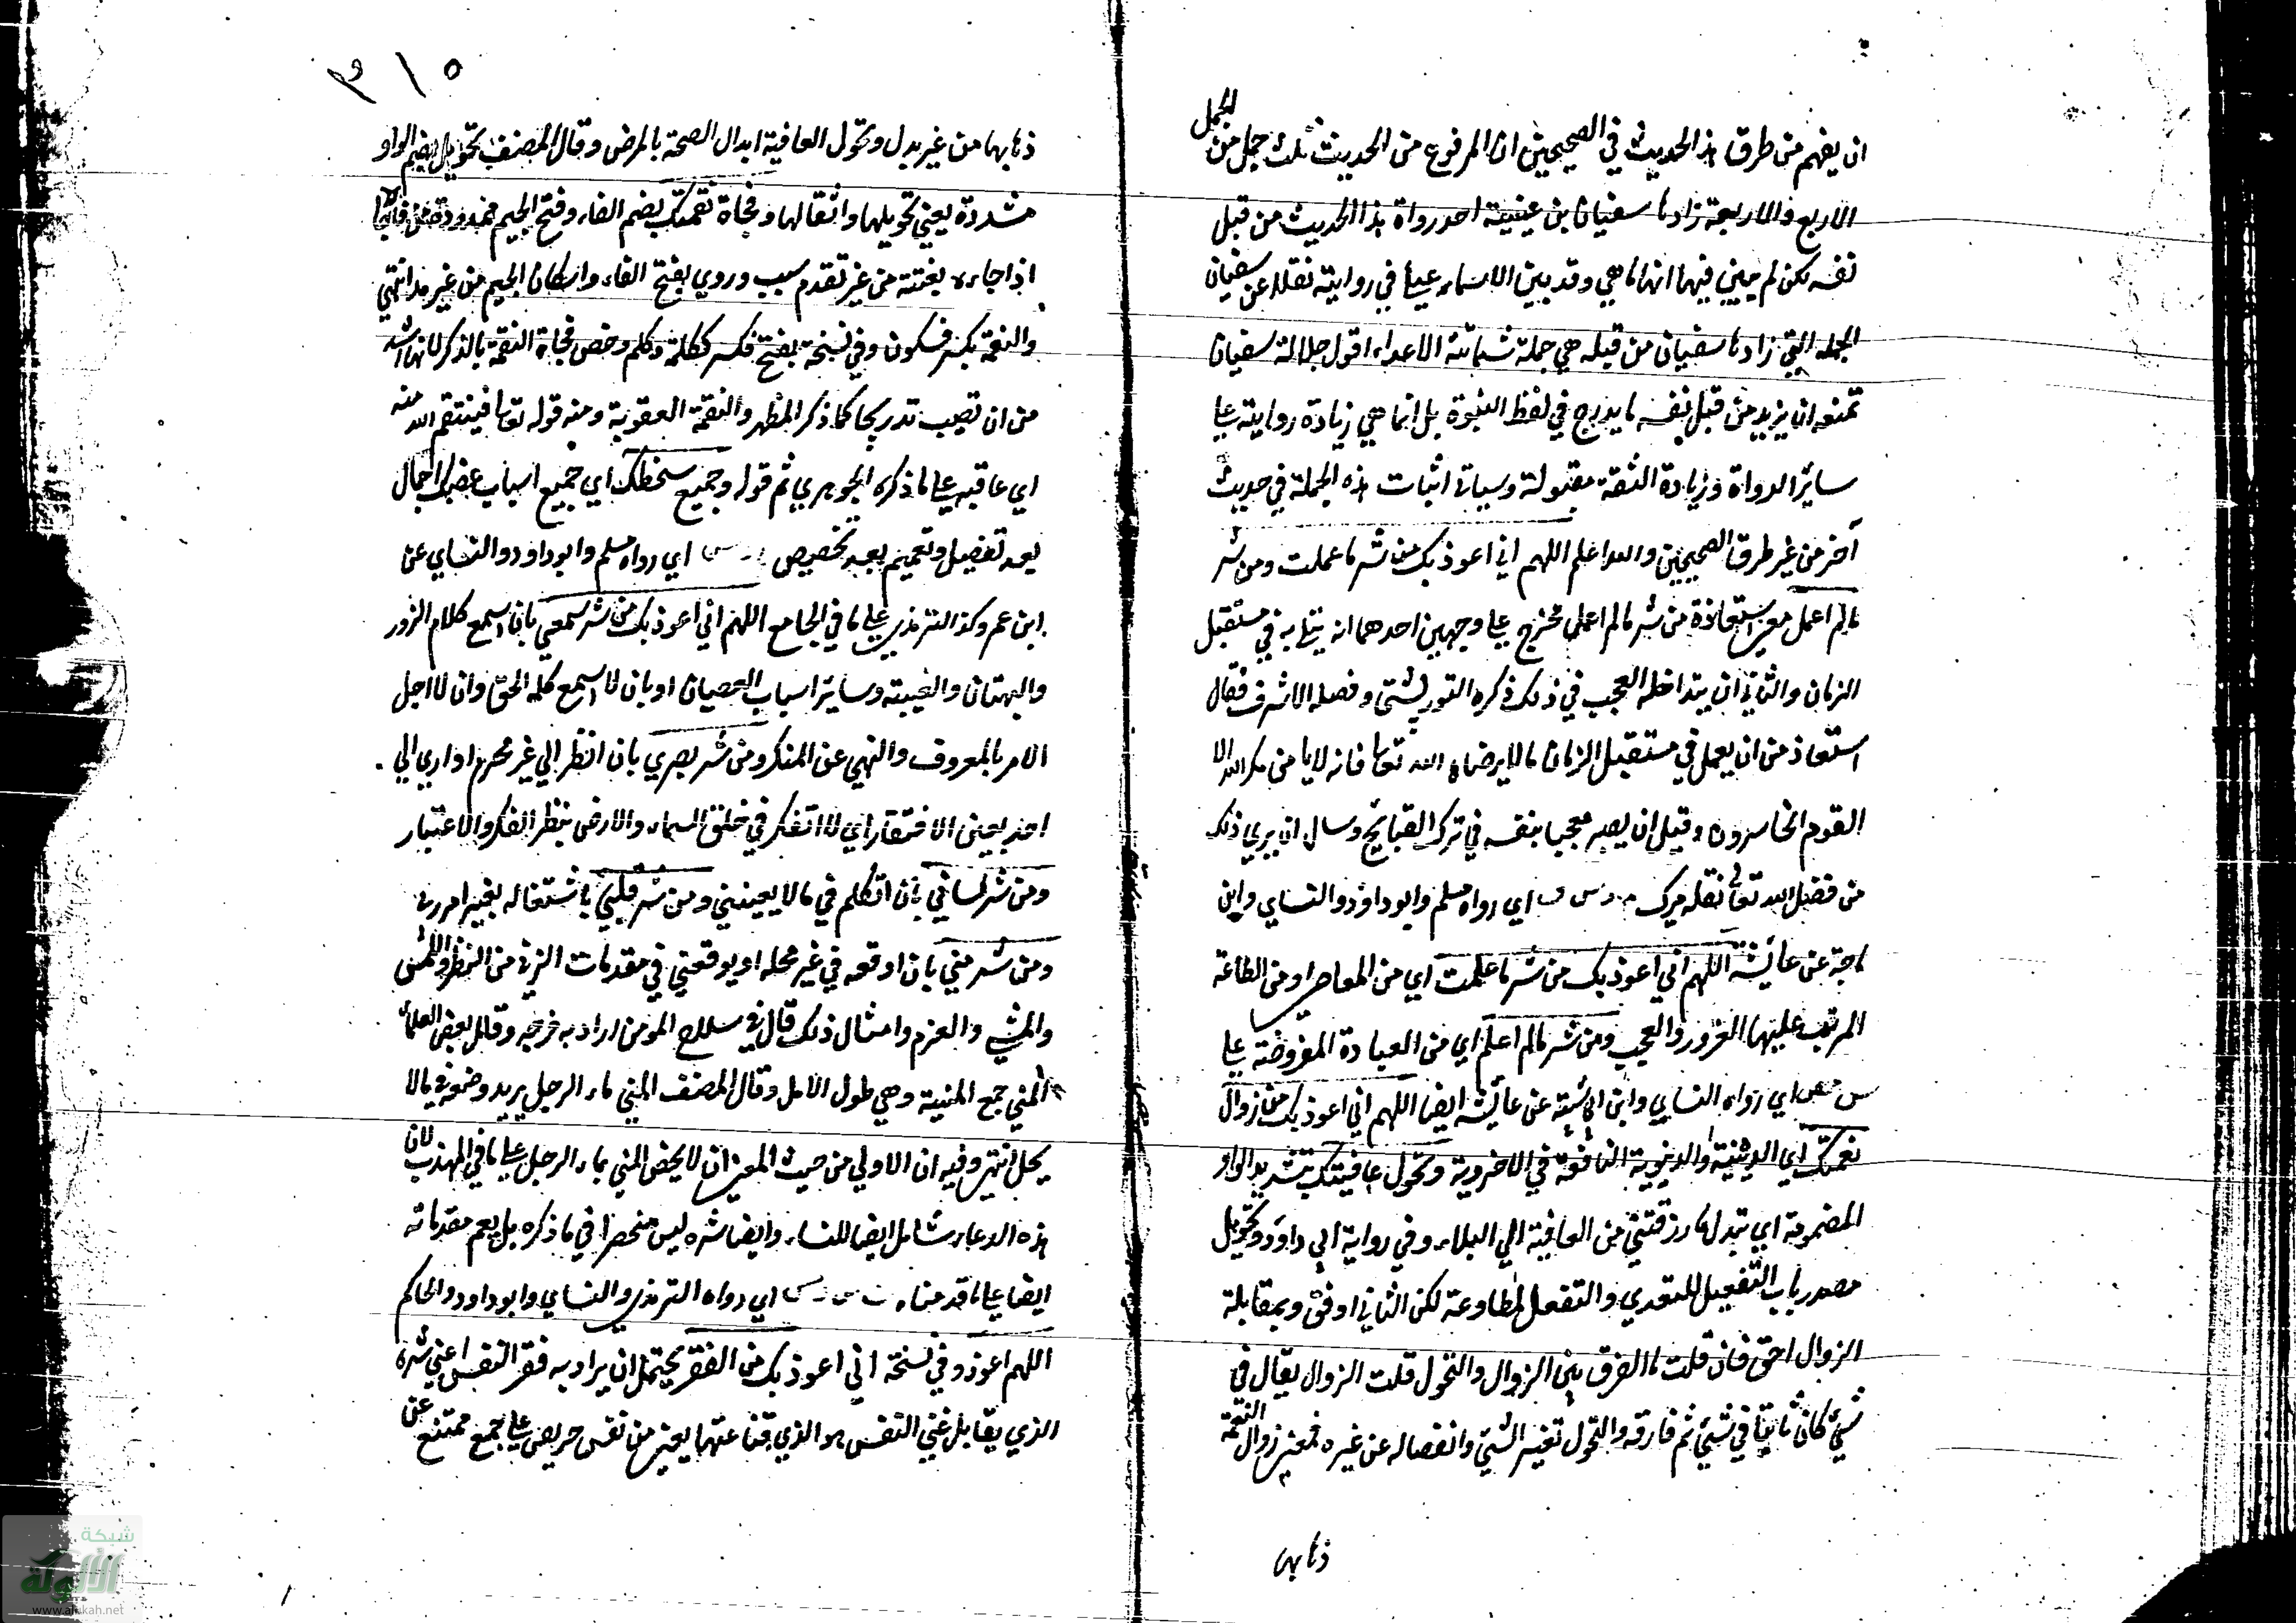 ان يفهم من طرق هذا الحديث في الصحيحين ان المرفوع من الحديث ثلث جمل من الجمل
الاربع والاربعة زادها سفيان بن عيينة احد رواة هذا الحديث من قبل
نفسه لكن لم يبين فيهما انها ما هي وقد بين الاسماعيلي في روايته نقلا عن سفيان
الجملة التي زادها سفيان من قبله هي جملة شماتة الاعداء اقول جلالة سفيان
تمنعه ان يزيد من قبل نفسه ما يدرج في لفظ النبوة بل انما هي زيادة رواية على
ساير الرواة وزيادة الثقة مقبولة وسياتي اثبات هذه الجملة في حديث
آخر من غير طرق الصحيحين والله اعلم اللهم اني اعوذ بك من شر ما عملت ومن شر
ما لم اعمل معنى استعاذة من شر ما لم اعمل مخرج على وجهين احدهما ان يبتلى به في مستقبل
الزمان والثاني ان يتداخله العجب في ذلك ذكره التوربشتي وفصله الاشرف فقال
استعاذ من ان يعمل في مستقبل الزمان ما لا يرضاه الله تعالى فانه لا يامن مكر الله الا
القوم الخاسرون وقيل ان يصير معجبا بنفسه في ترك القبايح وسال ان يري ذلك
من فضل الله تعالى نقله ميرك م د س ق اي رواه مسلم وابو داود والنساي وابن
ماجة عن عائشة اللهم اني اعوذ بك من شر ما علمت اي من المعاصي او من الطاعة
المرتب عليها الغرور والعجب ومن شر ما لم اعلم اي من العبادة المفروضة على
س مص اي رواه النساي وابن ابي شيبة عن عائشة ايضا اللهم اني اعوذ بك من زوال
نعمتك اي الدينية والدنيوية النافعة في الاخروية وتحول عافيتك بتشديد الواو
المضمومة اي تبدل ما رزقتني من العافية الي البلاء وفي رواية ابي داود وتحويل
مصدر باب التفعيل للتعدي والتفعل لمطاوعة لكن الثاني اوفق وبمقابلة
الزوال احق فان قلت ما الفرق بين الزوال والتحول قلت الزوال يقال في
شيئ كان ثابتا في شيئ ثم فارقه والتحول تغير الشيئ وانفصاله عن غيره فمعنى زوال النعمة
ذهابها
٣١٥
ذهابها من غير بدل وتحول العافية ابدال الصحة بالمرض وقال المصنف تحول بضم الواو
مشددة يعني تحويلها وانتقالها وفجاة نقمتك بضم الفاء وفتح الجيم ممدودة من فاجاه
اذا جاءه بغتة من غير تقدم سبب وروي بفتح الفاء واسكان الجيم من غير مد انتهي
والنقمة بكسر فسكون وفي نسخة بفتح فكسر ككلمة وكلم وخص فجاة النقمة بالذكر لانها اشد
من ان تصيب تدريجا كما ذكر المظهر والنقمة العقوبة ومنه قوله تعالى فينتقم الله منه
اي عاقبه على ما ذكره الجوهري ثم قوله وجميع سخطك اي جميع اسباب غضبك اجمال
بعد تفصيل وتعميم بعد تخصيص م د س اي رواه مسلم وابو داود والنساي عن
ابن عمر وكذا الترمذي على ما في الجامع اللهم اني اعوذ بك من شر سمعي بان اسمع كلام الزور
والبهتان والغيبة وساير اسباب العصيان او بان لا اسمع كلمة الحق وان لا اجل
الامر بالمعروف والنهي عن المنكر ومن شر بصري بان انظر الي غير محرم او اري الي
احد بعين الاحتقار اي لا اتفكر في خلق السماء والارض بنظر الفكر والاعتبار
ومن شر لساني بان اتكلم في ما لا يعنيني ومن شر قلبي باشتغاله بغير امر ربي
ومن شر منيي بان اوقعه في غير محله او يوقعني في مقدمات الزنى من النظر واللمس
والمشي والعزم وامثال ذلك قال في سلاح المومن اراد به فرجه وقال بعض العلماء
المني جمع المنية وهي طول الامل وقال المصنف المني ماء الرجل يريد وضعه فيما لا
يحل انتهى وفيه ان الاولي من حيث المعنى ان لا يخص المني بماء الرجل على ما في المهذب لان
هذه الدعاء شامل ايضا للنساء وايضا شره ليس منحصرا في ما ذكره بل يعم مقدماته
ايضا على ما قدمناه ت س د مس اي رواه الترمذي والنساي وابو داود والحاكم
اللهم اعوذ وفي نسخة اني اعوذ بك من الفقر يحتمل ان يراد به فقر النفس اعني شره
الذي يقابل غني النفس هو الذي قناعتها يعني من نفس حريص على جمع ممتنع عن
شبكة
الألوكة
www.alukah.net